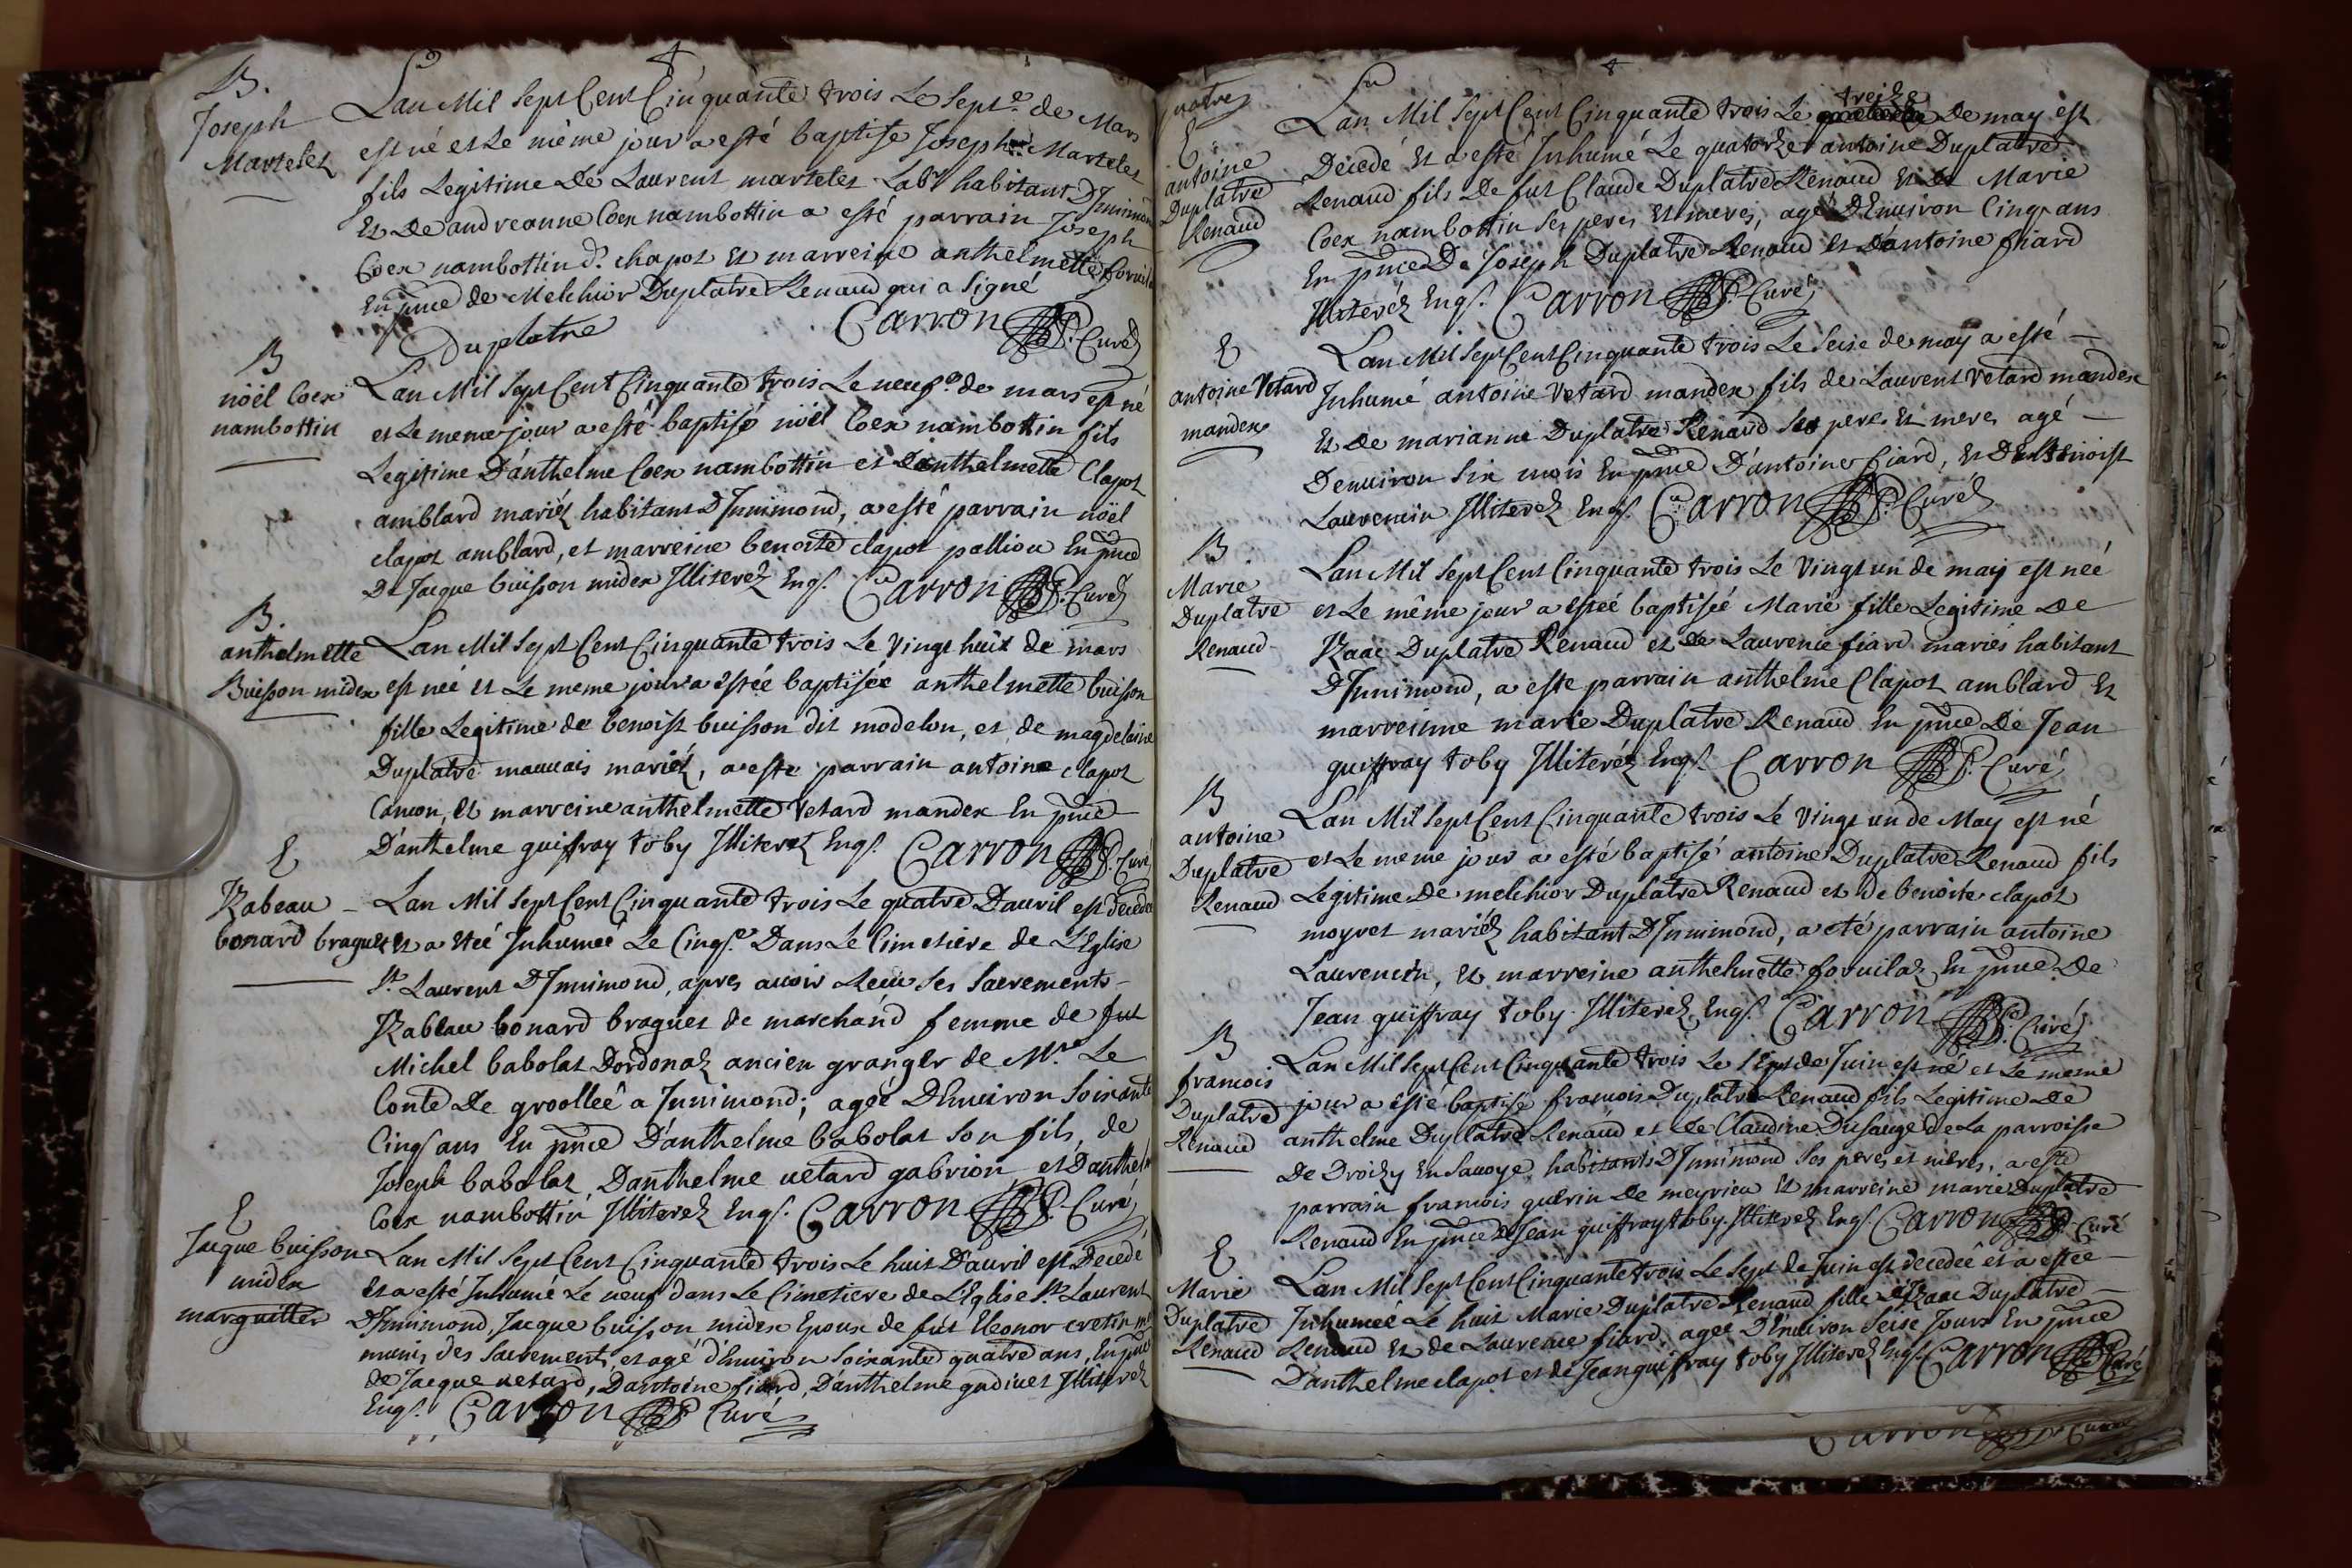 B.
Joseph
Martelet
Lan Mil Sept Cent Cinquante trois Le Sept.e de Mars
est né et Le même jour a esté baptise Joseph Martelet
fils Legitime De Laurent martelet Labr habitant D'Innimond
Et De andreanne Coex nambottin a esté parrain Joseph
Coex nambottin d. chapot et marreine anthelmette
En pnce de Melchior Duplatre Renaud qui a Signé
Duplatre Carron P. Curé
B
nöel Coex
nambottin
Lan Mil Sept Cent Cinquante trois Le neuf.e de mars est né
et Le meme jour a esté baptisé nöel Coex nambottin fils
Legitime D'anthelme Coex nambottin et Danthelmette Clapot
amblard mariéz habitant D'Innimond, a esté parrain nöel
clapot amblard, et marreine benoite clapot pallion En pnce
De Jacque buisson midex Illiterez Enqs. Carron P. Curé
B.
anthelmette
Buisson midex
Lan Mil Sept Cent Cinquante trois Le Vingt huit de mars
est née et Le meme jour a estée baptisée anthelmette buisson
fille Legitime de benoist buisson dit modelon, et de magdelaine
Duplatre mauvais mariéz, a esté parrain antoine clapot
Camon, et marreine anthelmette Vetard mandex En pnce
D'anthelme guiffray toby Illiterez Enqs. Carron P. Curé
E
Izabeau
bonard braguet
Lan Mil Sept Cent Cinquante trois Le quatre Dauril est Decedée
et a etée Inhumeé Le Cinqs.e Dans Le Cimetiere de L'Eglise
St. Laurent D'Innimond, apres auoir Receu Ses Sacrements
Izabeau bonard braguet de marchand femme de fut
Michel babolat Dordonaz ancien granger de Mre. Le
Conte De groolleê a Innimond; ageé D'Enuiron Soixante
Cinqs ans En pnce D'anthelme babolat Son fils, de
Joseph babolat, Danthelme uetard gabrion et D'anthelme
Coex nambottin Illiterez Enqs. Carron P. Curé
E
Jacque buisson
midex
marguiller
Lan Mil Sept Cent Cinquante trois Le huit D'auril est Decedé
Et a esté Inhumé Le neuf Dans Le Cimetiere de L'Eglise St. Laurent
D'Innimond, Jacque buisson midex Epoux de fut Eleonor cretin
munis des Sacrements, et agé d'Enuiron Soixante quatre ans, En pnce
de Jacque uetard, D'antoine fiard, D'anthelme gudivet Illiterez
Enqs. Carron P. Curé
quatre
E
antoine
Duplatre
Renaud
Lan Mil Sept Cent Cinquante trois Le treize De may est
Decedé Et a esté Inhumé Le quatorze antoine Duplatre
Renaud fils De fut Claude Duplatre Renaud Et de Marie
Coex nambottin Ses peres Et meres, agé D'Enuiron Cinq ans
En pnce De Joseph Duplatre Renaud et D'antoine fiard
Illiteréz Enqs. Carron P. Curé
E
antoine Vetard
mandex
Lan Mil Sept Cent Cinquante trois Le Seise de may a esté
Inhumé antoine Vetard mandex fils de Laurent Vetard mandex
Et De marianne Duplatre Renaud Ses pere. Et mere, agé
Denuiron Six mois En pnce D'antoine fiard, Et De benoist
Laurencin Illiterez Enqs. Carron P. Curé
B
Marie
Duplatre
Renaud
Lan Mil Sept Cent Cinquante trois Le Vingt un de may est née
et Le même jour a esteé baptiseé Marie fille Legitime De
Izaac Duplatre Renaud et de Laurence fiard mariés habitant
D'Innimond, a este parrain anthelme Clapot amblard Et
marreinne marie Duplatre Renaud En pnce De Jean
guiffray toby Illiteréz Enqs. Carron P. Curé
B
antoine
Duplatre
Renaud
Lan Mil Sept Cent Cinquante trois Le Vingt un de May est né
et Le meme jour a esté baptisé antoine Duplatre Renaud fils
Legitime De melchior Duplatre Renaud et de benoite clapot
moyret mariéz habitant D'Innimond, a eté parrain antoine
Laurencin, Et marreine anthelmette foruilaz En pnce De
Jean guiffray toby Illiterez Enqs. Carron P. Curé
B
francois
Duplatre
Renaud
Lan Mil Sept Cent Cinquante trois Le Sept de Juin est né et Le meme
jour a este baptisé francois Duplatre Renaud fils Legitime De
anthelme Duplatre Renaud et de Claudine Dusauge de La parroisse
De Droizy En Sauoye habitants D'Innimond Ses peres et mères, a esté
parrain francois guerin de meyrieu Et marreine marie Duplatre
Renaud En pnce De Jean guiffray toby. Illiterez Enqs. Carron P. Curé
E
Marie
Duplatre
Renaud
Lan Mil Sept Cent Cinquante trois Le Sept de Juin est decedeê et a estée
Inhumeé Le huit Marie Duplatre Renaud fille d'Izaac Duplatre
Renaud Et de Laurence fiard, ageé D'Enuiron Seise Jours En pnce
D'anthelme clapot et de Jean guiffray toby Illiterez Enqs. Carron P. Curé
Carron P. Curé